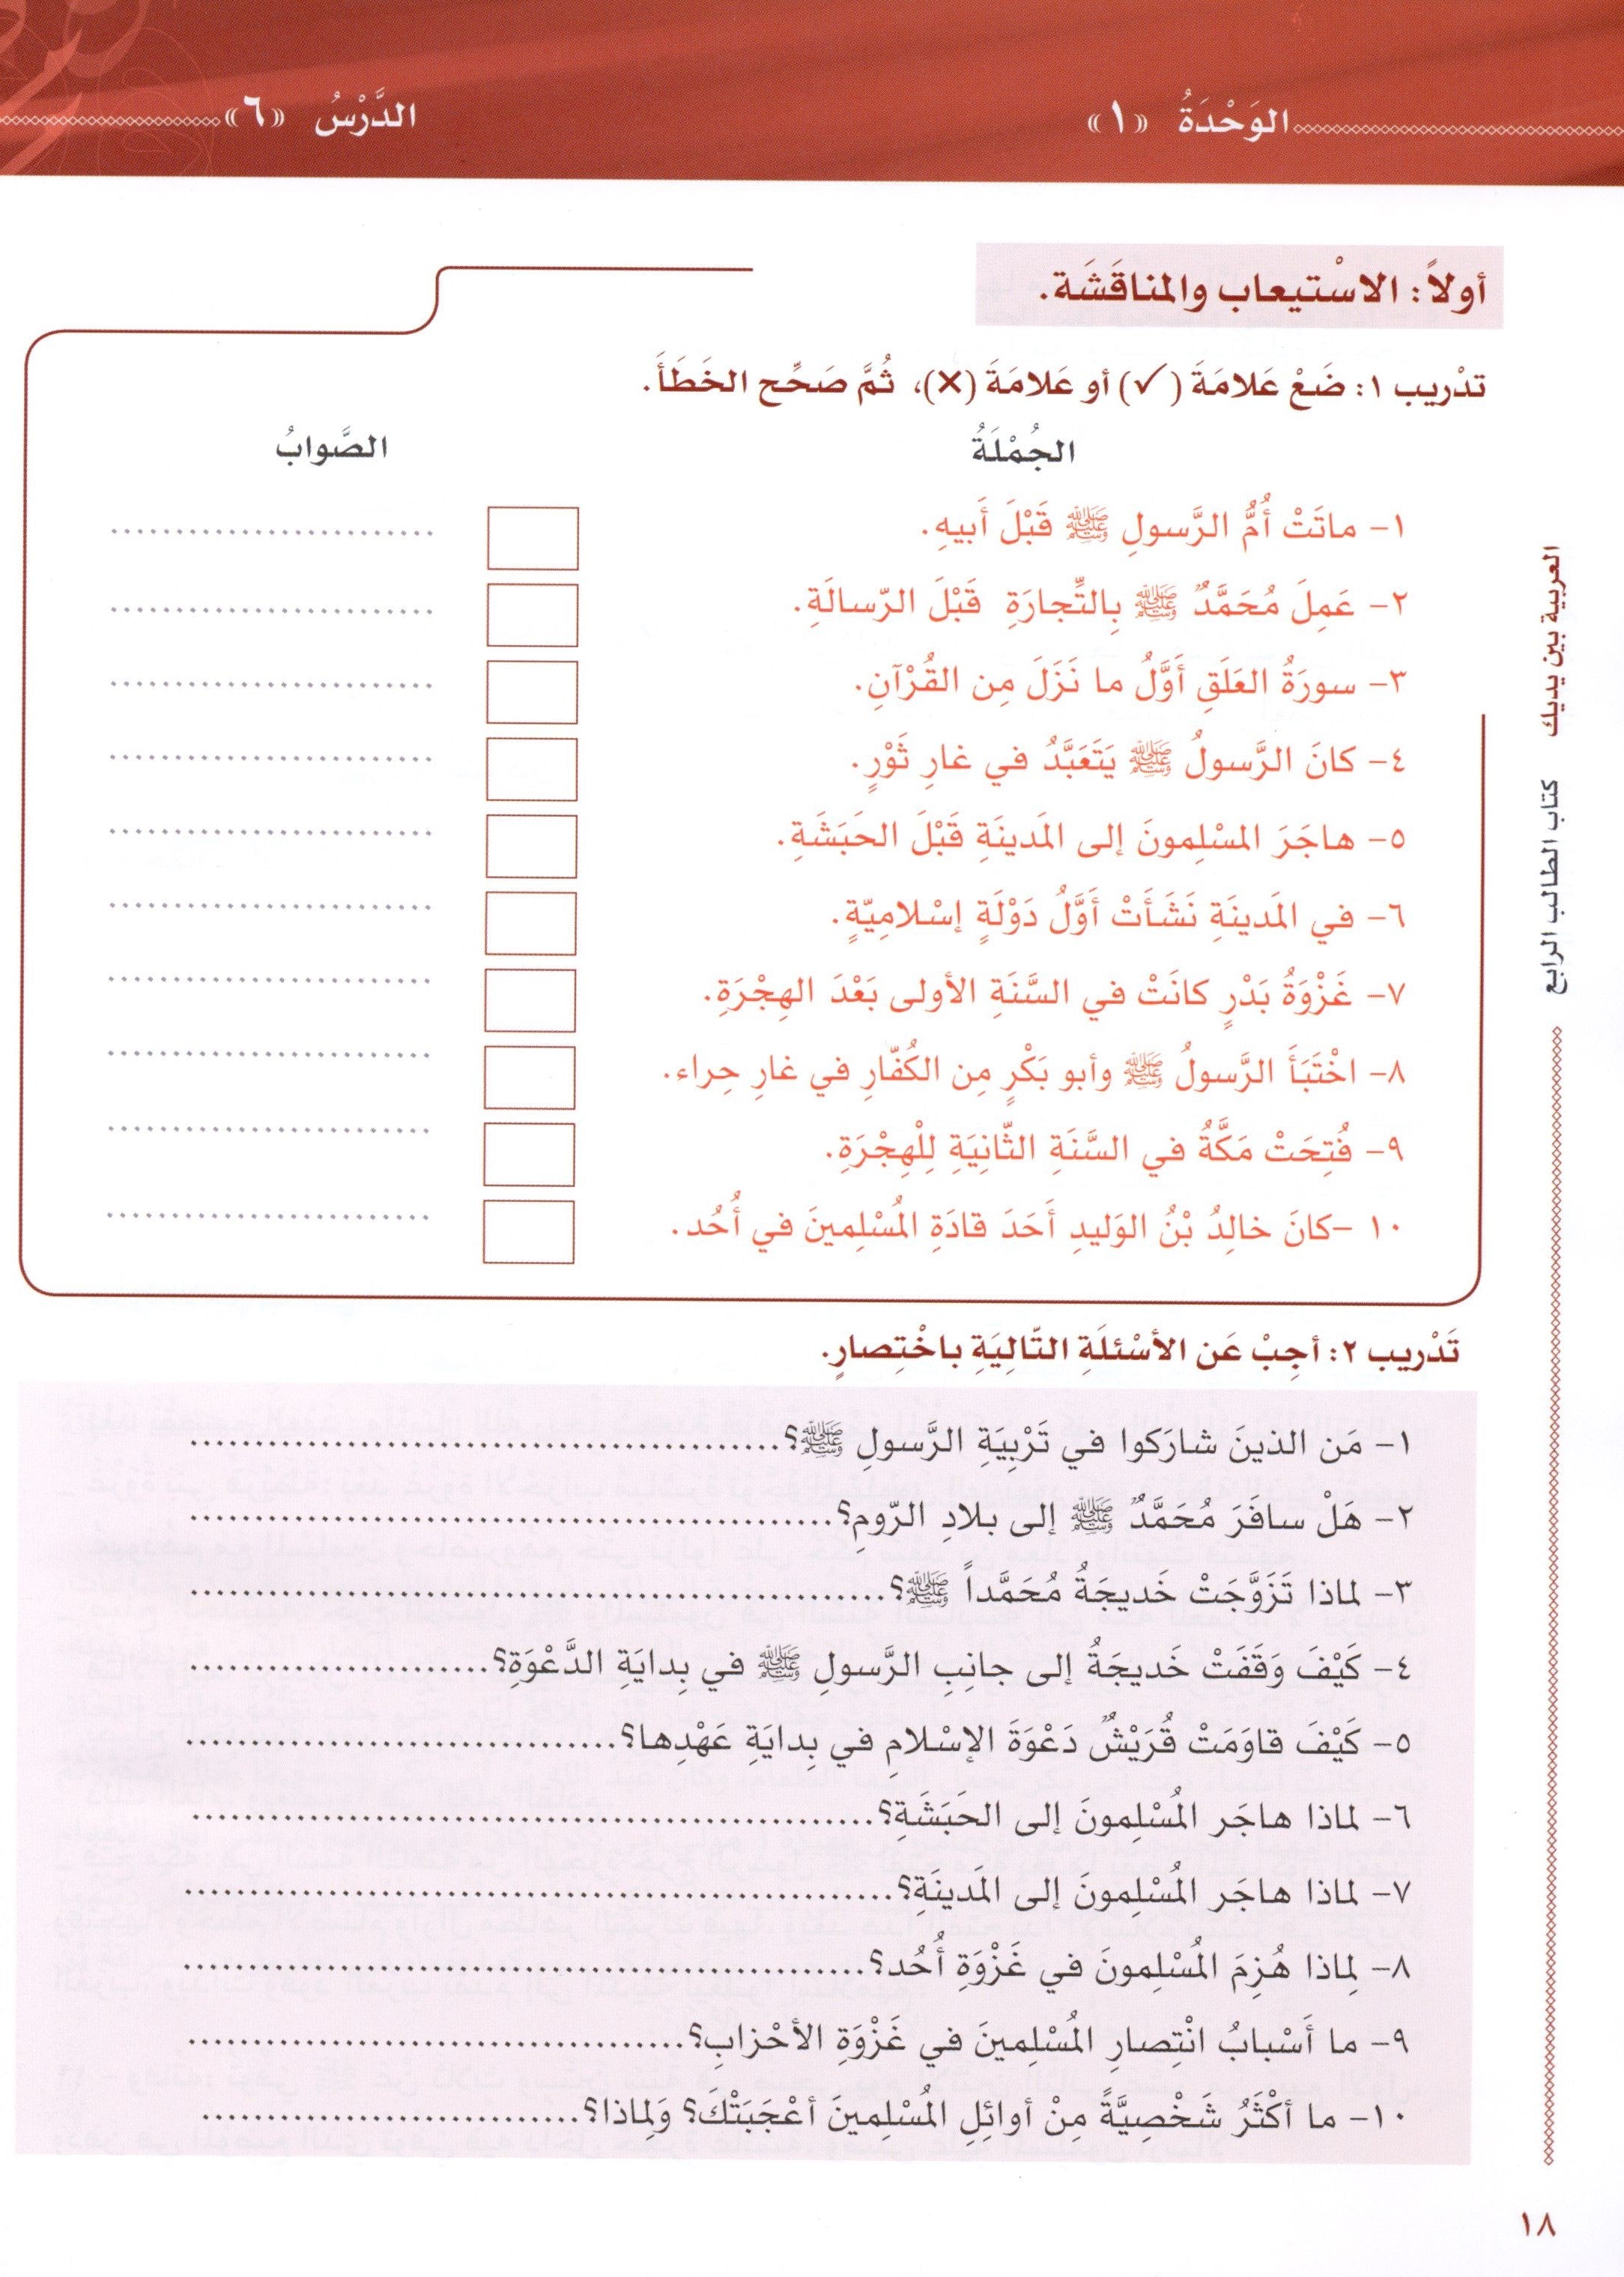 الوَحْدَةُ «١»
الدَّرْسُ «٦»
أولاً: الاسْتيعاب والمناقَشَة.
تدْريب ١: ضَعْ عَلامَةَ (✓) أو عَلامَةَ (✗)، ثُمَّ صَحِّح الخَطَأَ.
الجُمْلَةُ
الصَّوابُ
١- ماتَتْ أُمُّ الرَّسولِ ﷺ قَبْلَ أَبيهِ.
٢- عَمِلَ مُحَمَّدٌ ﷺ بِالتِّجارَةِ قَبْلَ الرّسالَةِ.
٣- سورَةُ العَلَقِ أَوَّلُ ما نَزَلَ مِن القُرْآنِ.
٤- كانَ الرَّسولُ ﷺ يَتَعَبَّدُ في غارِ ثَوْرٍ.
٥- هاجَرَ المسْلِمونَ إلى المَدينَةِ قَبْلَ الحَبَشَةِ.
٦- في المَدينَةِ نَشَأَتْ أَوَّلُ دَوْلَةٍ إسْلامِيّةٍ.
٧- غَزْوَةُ بَدْرٍ كانَتْ في السَّنَةِ الأولى بَعْدَ الهِجْرَةِ.
٨- اخْتَبَأَ الرَّسولُ ﷺ وأبو بَكْرٍ مِن الكُفّارِ في غارِ حِراء.
٩- فُتِحَتْ مَكَّةُ في السَّنَةِ الثّانِيَةِ لِلْهِجْرَةِ.
١٠ -كانَ خالِدُ بْنُ الوَليدِ أَحَدَ قادَةِ المُسْلِمينَ في أُحُد.
تَدْريب ٢: أجِبْ عَن الأسْئلَةِ التّالِيَةِ باخْتِصارٍ.
١- مَن الذينَ شارَكوا في تَرْبِيَةِ الرَّسولِ ﷺ؟
٢- هَلْ سافَرَ مُحَمَّدٌ ﷺ إلى بلادِ الرّومِ؟
٣- لماذا تَزَوَّجَتْ خَديجَةُ مُحَمَّداً ﷺ؟
٤- كَيْفَ وَقَفَتْ خَديجَةُ إلى جانِبِ الرَّسولِ ﷺ في بِدايَةِ الدَّعْوَةِ؟
٥- كَيْفَ قاوَمَتْ قُرَيْشٌ دَعْوَةَ الإسْلامِ في بِدايَةِ عَهْدِها؟
٦- لماذا هاجَر المُسْلِمونَ إلى الحَبَشَةِ؟
٧- لماذا هاجَر المُسْلِمونَ إلى المَدينَةِ؟
٨- لِماذا هُزِمَ المُسْلِمونَ في غَزْوَةِ أُحُد؟
٩- ما أَسْبابُ انْتِصارِ المُسْلِمينَ في غَزْوَةِ الأحْزابِ؟
١٠- ما أكْثَرُ شَخْصِيَّةً مِنْ أوائِلِ المُسْلِمينَ أعْجَبَتْكَ؟ وَلِماذا؟
العربية بين يديك كتاب الطالب الرابع
١٨